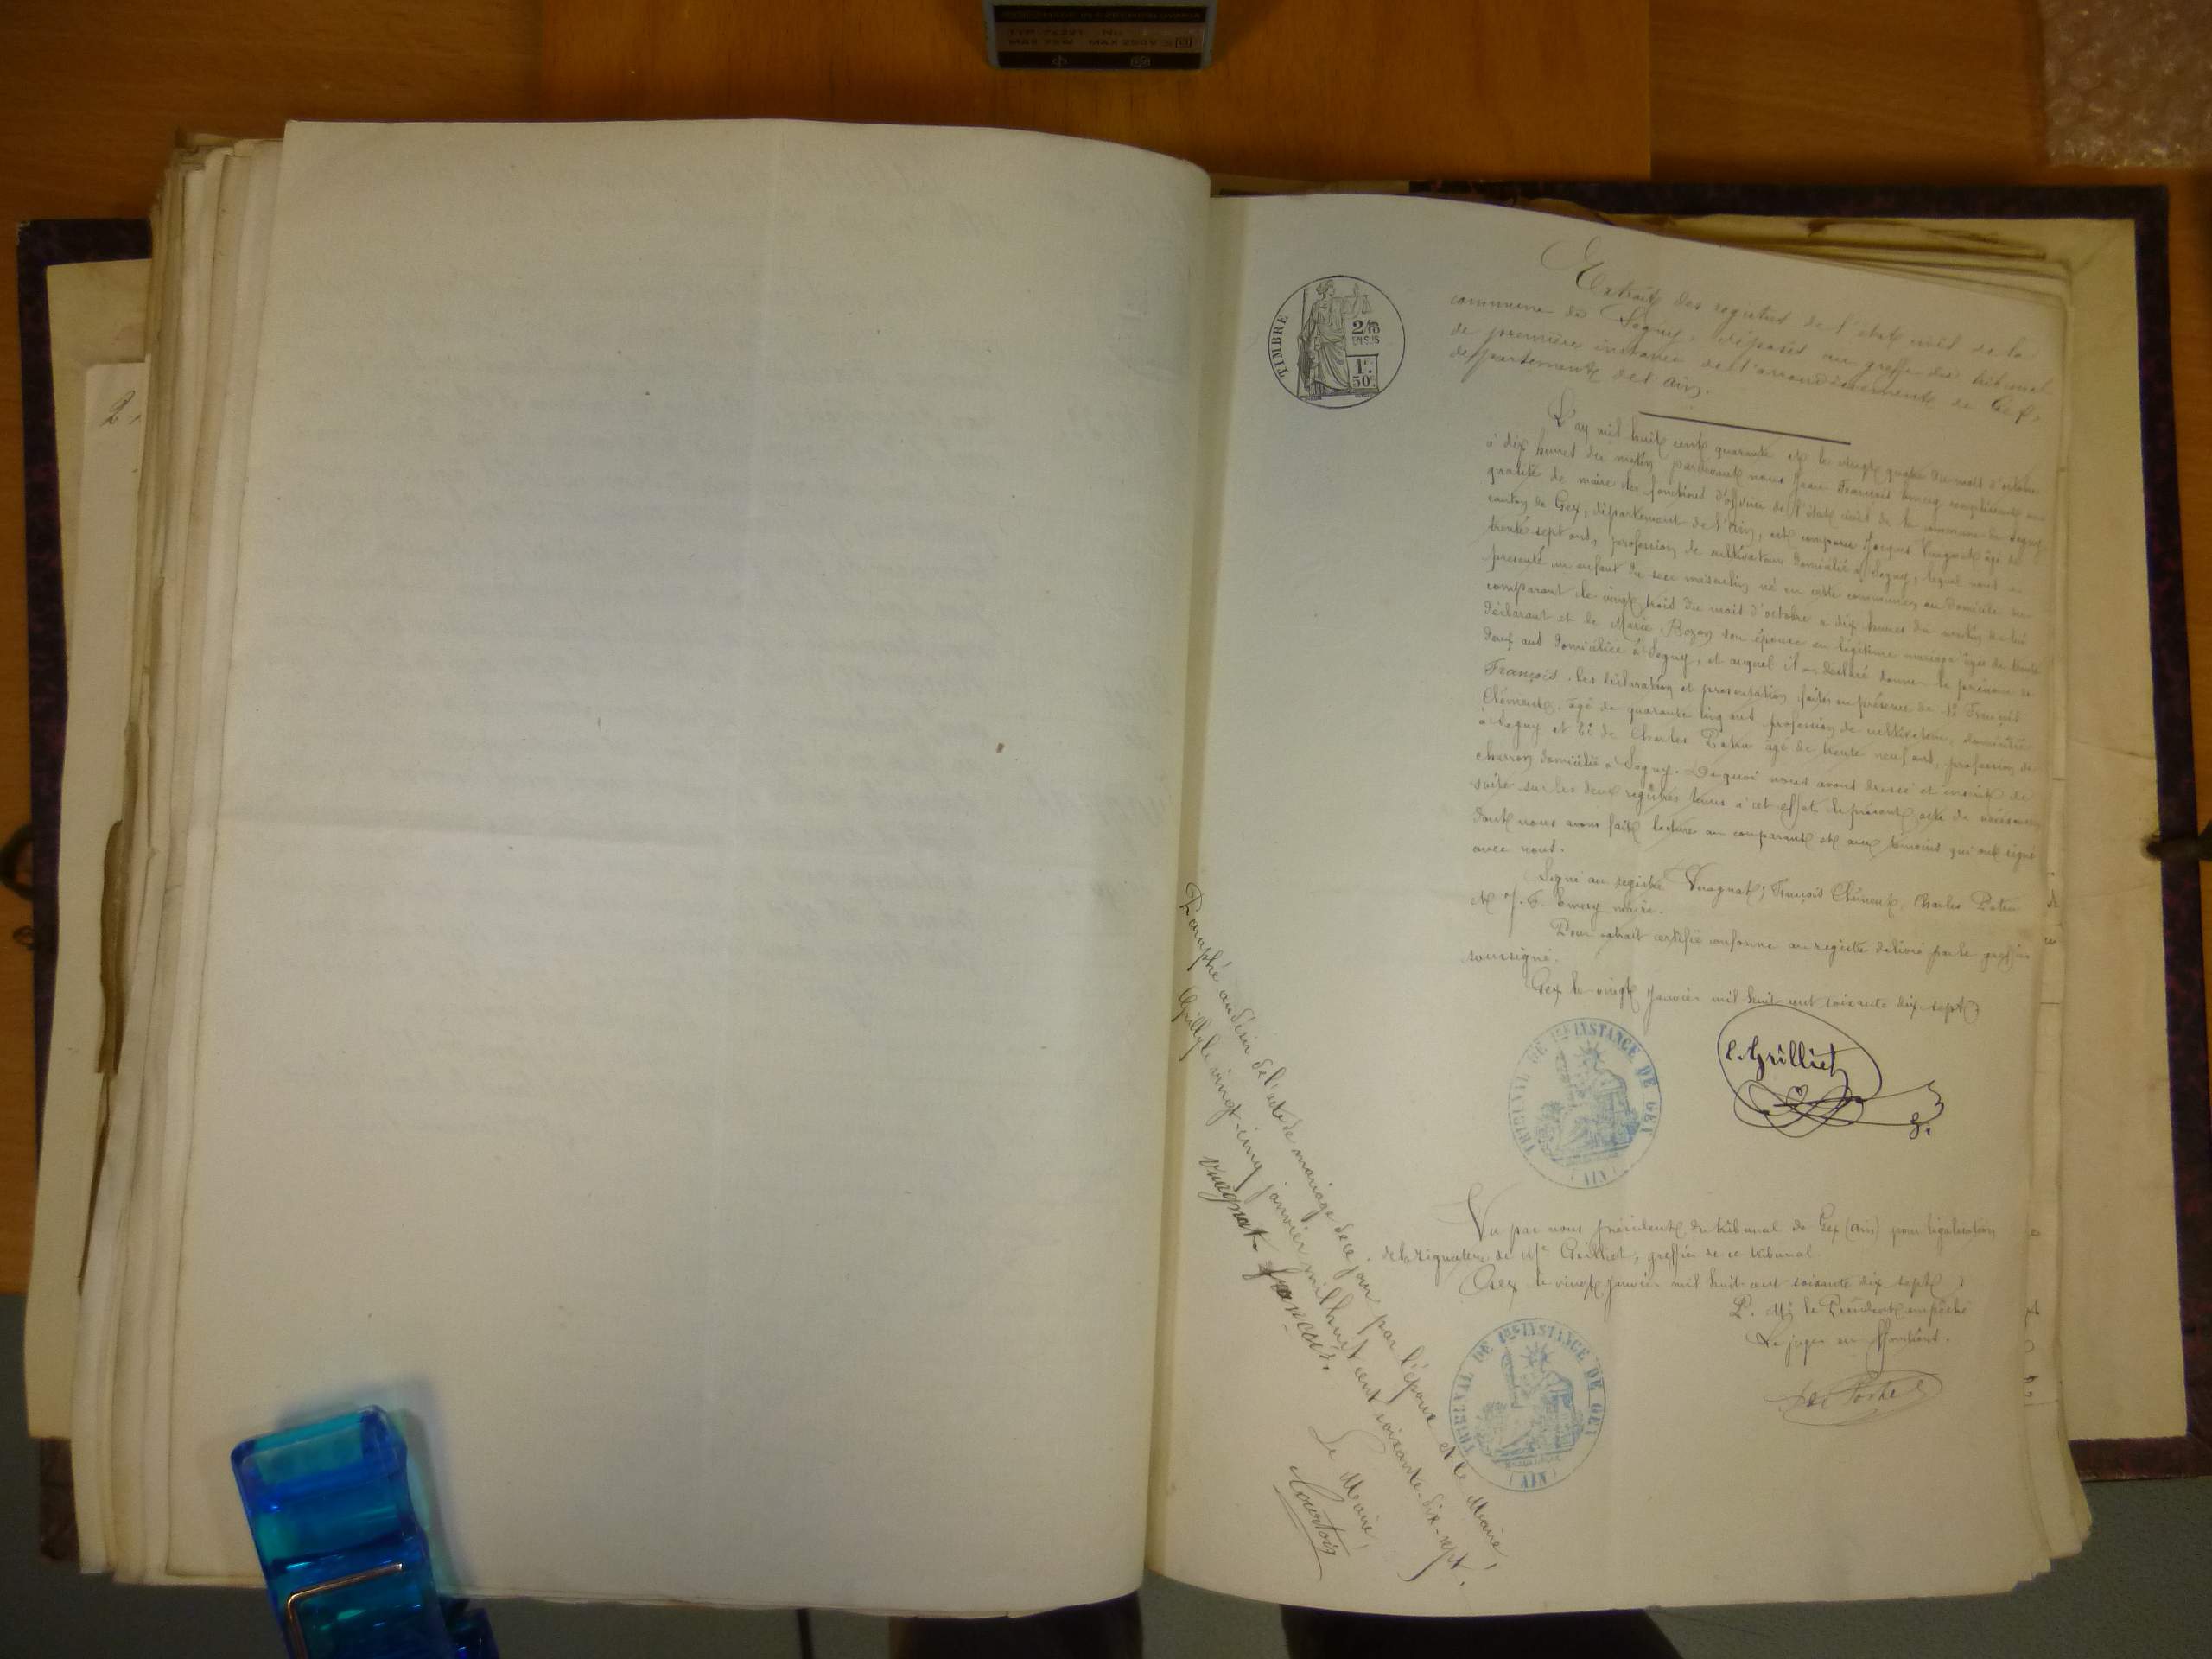 2
TIMBRE
2/10
EN SUS
1F.
50c.
Extrait des registres de l'état civil de la
commune de Segny, déposés au greffe du tribunal
de première instance de l'arrondissement de Gex,
département de l'Ain.
L'an mil huit cent quarante et le vingt quatre du mois d'octobre
à dix heures du matin pardevant nous Jean François Emery remplissant en
qualité de maire les fonctions d'officier de l'état civil de la commune de Segny
canton de Gex, département de l'Ain, est comparu Jacques Vuagnat âgé de
trente sept ans, profession de cultivateur domicilié à Segny, lequel nous a
présenté un enfant du sexe masculin né en cette commune au domicile du
comparant le vingt trois du mois d'octobre à dix heures du matin de lui
déclarant et de Marie Bozon son épouse en légitime mariage âgée de trente
deux ans domiciliée à Segny, et auquel il a déclaré donner le prénom de
François. Les déclaration et présentation faites en présence de 1° François
Clément, âgé de quarante cinq ans profession de cultivateur, domicilié
à Segny et 2° de Charles Patru âgé de trente neuf ans, profession de
charron domicilié à Segny. De quoi nous avons dressé et inscrit de
suite sur les deux registres tenus à cet effet le présent acte de naissance
dont nous avons fait lecture au comparant et aux témoins qui ont signé
avec nous.
Signé au registre Vuagnat, François Clément, Charles Patru
et J. F. Emery maire.
Pour extrait certifié conforme au registre délivré par le greffier
soussigné.
Gex le vingt Janvier mil huit cent soixante dix-sept
TRIBUNAL DE 1ère INSTANCE DE GEX
(AIN)
C. Grilliet
Vu par nous président du tribunal de Gex (Ain) pour légalisation
de la signature de Me Grilliet, greffier de ce tribunal.
Gex le vingt Janvier mil huit cent soixante dix sept
P. Mr le Président empêché
Le juge en fonctions.
TRIBUNAL DE 1ère INSTANCE DE GEX
(AIN)
Paraphé au désir de l'acte de mariage de ce jour par l'époux et le Maire,
le vingt-cinq janvier mil huit cent soixante-dix-sept.
Vuagnat françois.
Le Maire,
Courtois